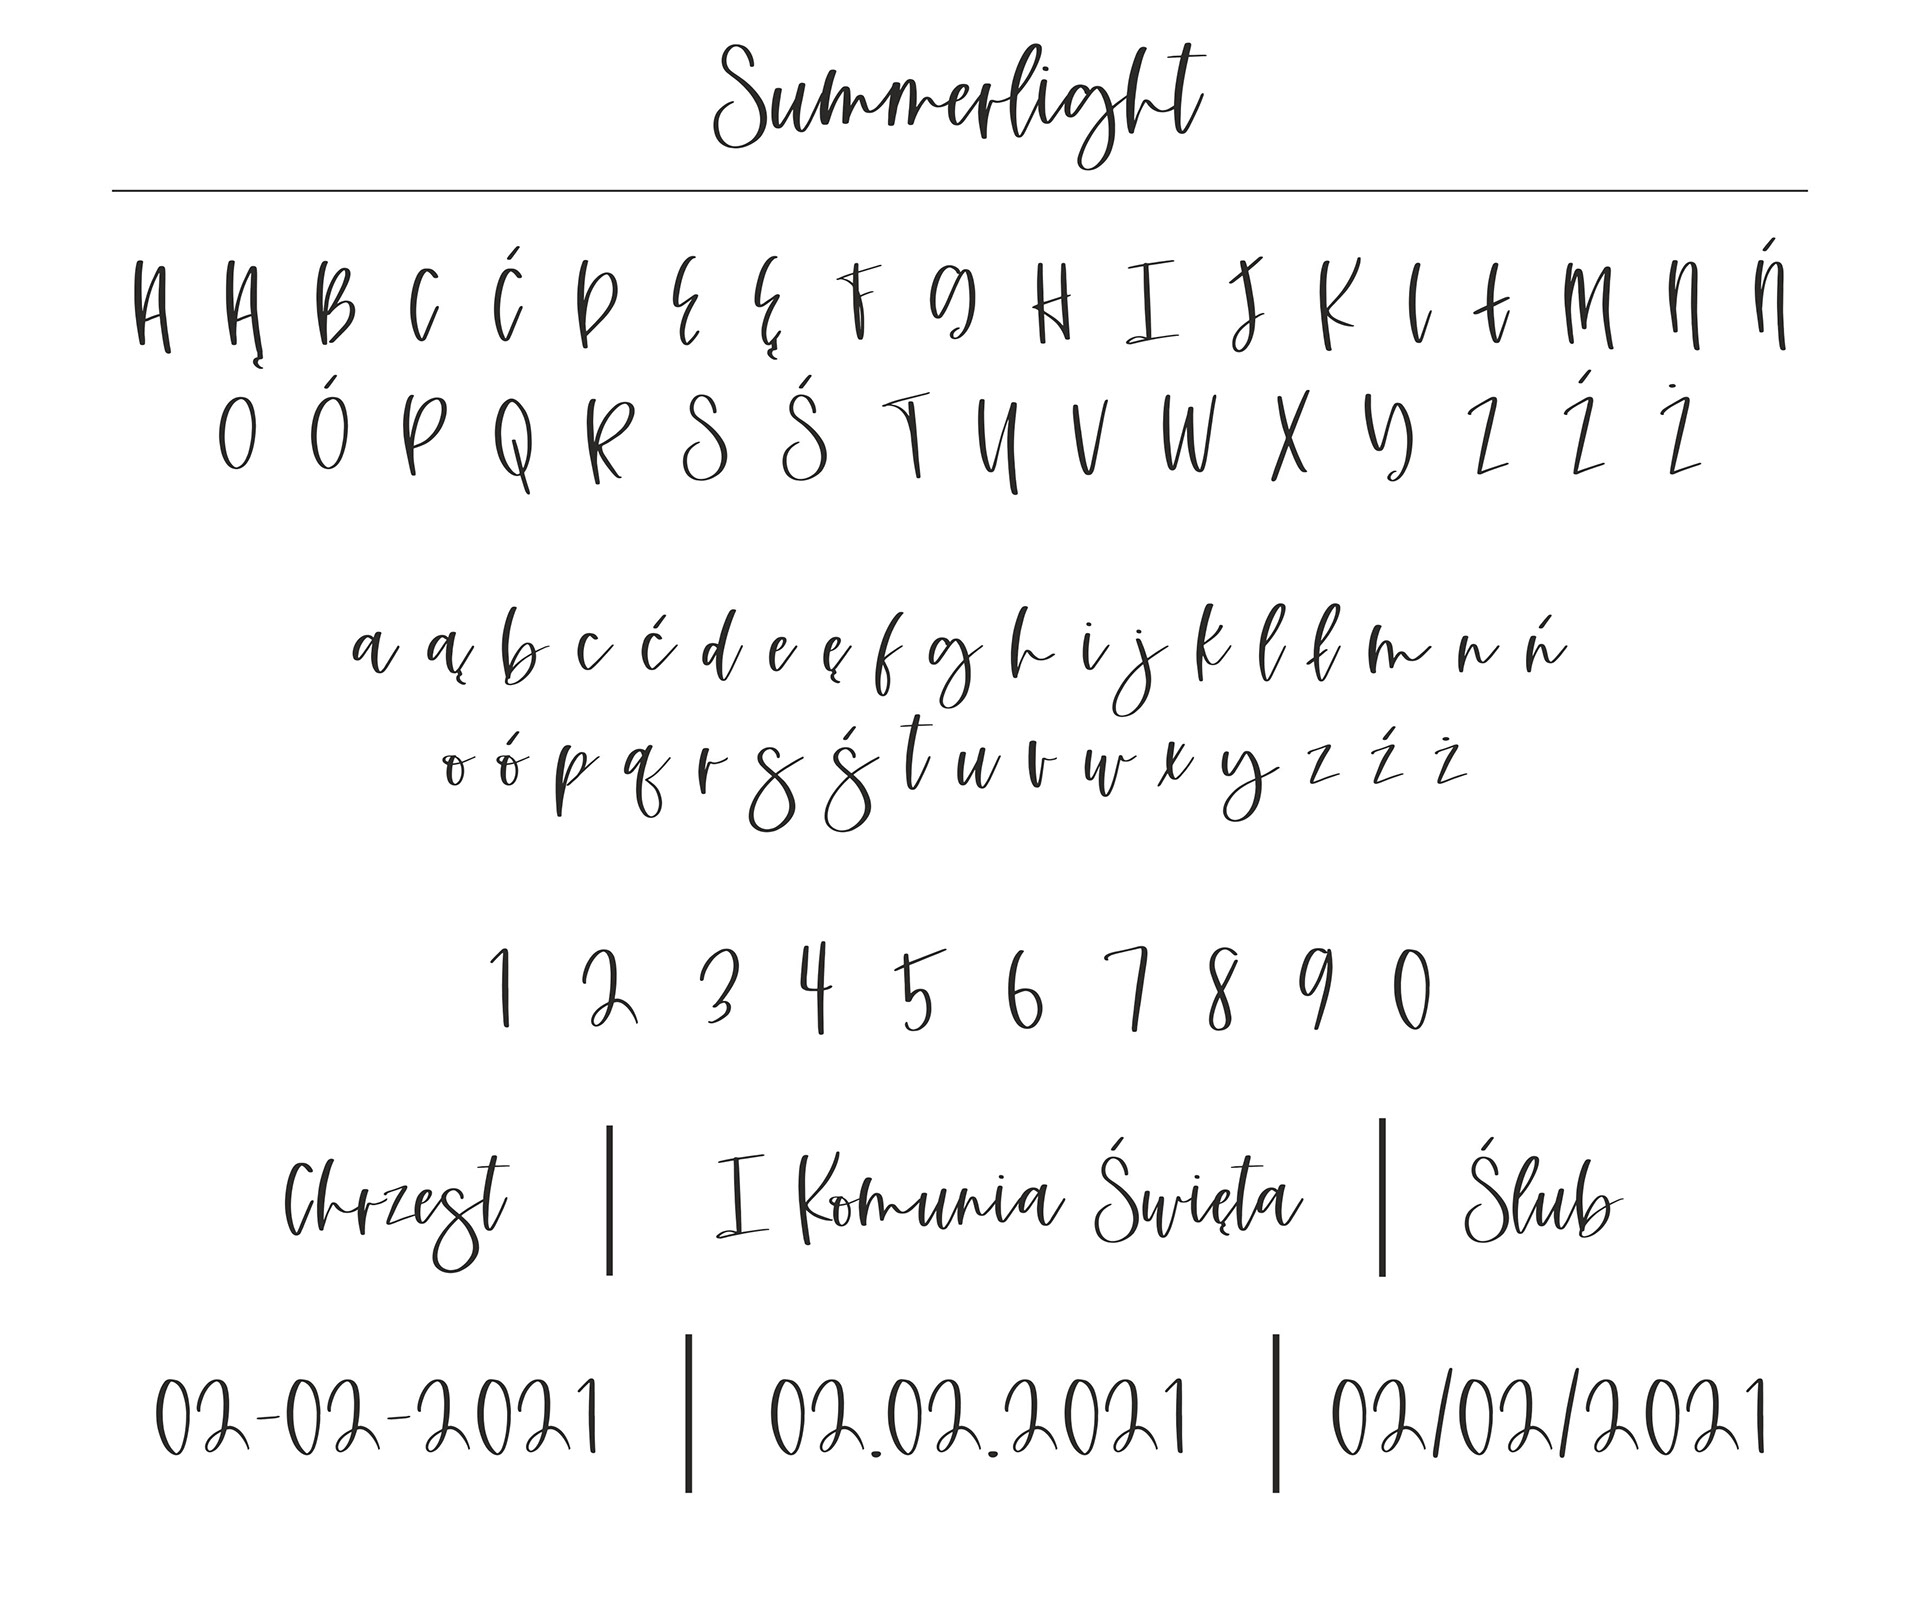 Summerlight
A Ą B C Ć D E Ę F G H I J K L Ł M N Ń
O Ó P Q R S Ś T U V W X Y Z Ź Ż
a ą b c ć d e ę f g h i j k l ł m n ń
o ó p q r s ś t u v w x y z ź ż
1 2 3 4 5 6 7 8 9 0
Chrzest | I Komunia Święta | Ślub
02-02-2021 | 02.02.2021 | 02/02/2021